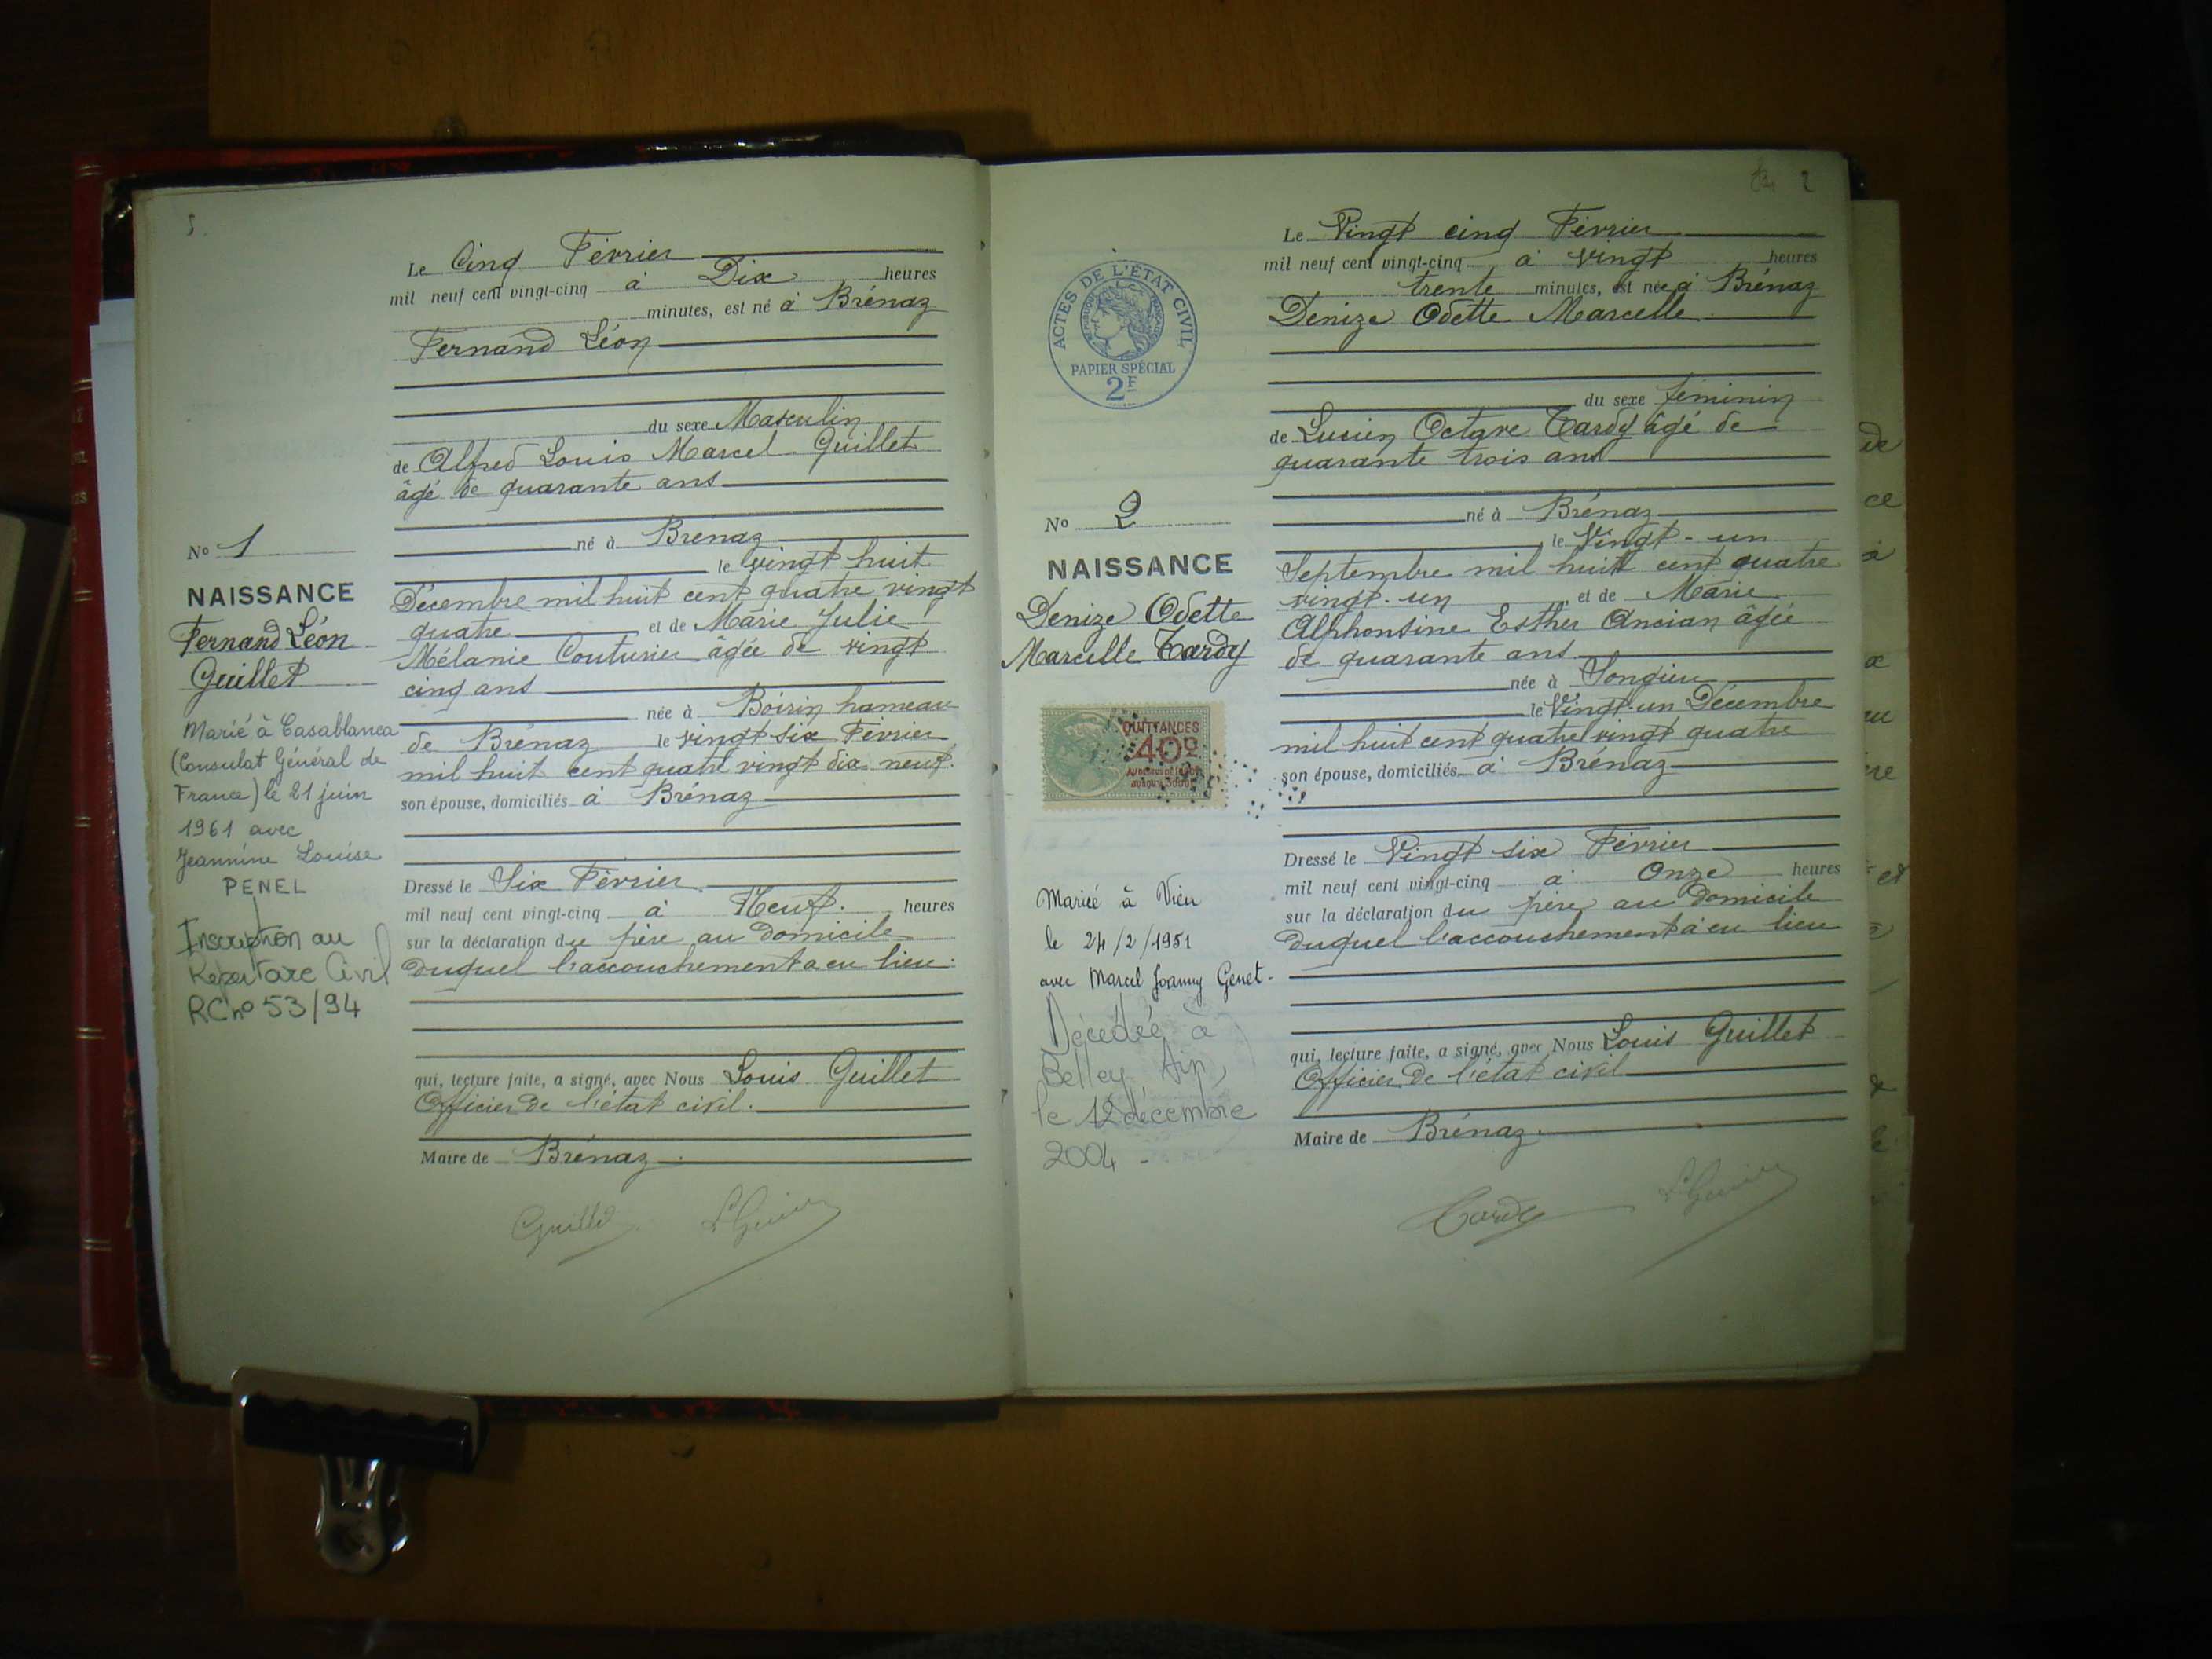 Le Cinq Février
mil neuf cent vingt-cinq à Dix heures
minutes, est né à Brénaz
Fernand Léon
du sexe Masculin
de Alfred Louis Marcel Guillet
âgé de quarante ans
né à Brénaz
le vingt huit
Décembre mil huit cent quatre vingt
quatre et de Marie Julie
Mélanie Couturier âgée de vingt
cinq ans
née à Boirin hameau
de Brénaz le vingt six Février
mil huit cent quatre vingt dix neuf.
son épouse, domiciliés à Brénaz
Dressé le Six Février
mil neuf cent vingt-cinq à Neuf. heures
sur la déclaration du père au domicile
duquel l'accouchement a eu lieu.
qui, lecture faite, a signé, avec Nous Louis Guillet
Officier de l'état civil.
Maire de Brénaz.
No 1
NAISSANCE
Fernand Léon
Guillet
Marié à Casablanca
(Consulat Général de
France) le 21 juin
1961 avec
Jeannine Louise
PENEL
Inscription au
Repertoire Civil
RC no 53/94
2
Le Vingt cinq Février
mil neuf cent vingt-cinq à vingt heures
trente minutes, est née à Brénaz
Denize Odette Marcelle
du sexe féminin
de Lucien Octave Tardy âgé de
quarante trois ans
né à Brénaz
le Vingt-un
Septembre mil huit cent quatre
vingt-un et de Marie
Alphonsine Esther Ancian âgée
de quarante ans
née à Songieu
le Vingt-un Décembre
mil huit cent quatre vingt quatre
son épouse, domiciliés à Brénaz
Dressé le Vingt six Février
mil neuf cent vingt-cinq à Onze heures
sur la déclaration du père au domicile
duquel l'accouchement a eu lieu
qui, lecture faite, a signé, avec Nous Louis Guillet
Officier de l'état civil
Maire de Brénaz.
Tardy
ACTES DE L'ÉTAT CIVIL
PAPIER SPÉCIAL
2F
No 2
NAISSANCE
Denize Odette
Marcelle Tardy
QUITTANCES
40c
Mariée à Vieu
le 24/2/1951
avec Marcel Joanny Genet.
Décédée à
Belley, Ain,
le 12 décembre
2004